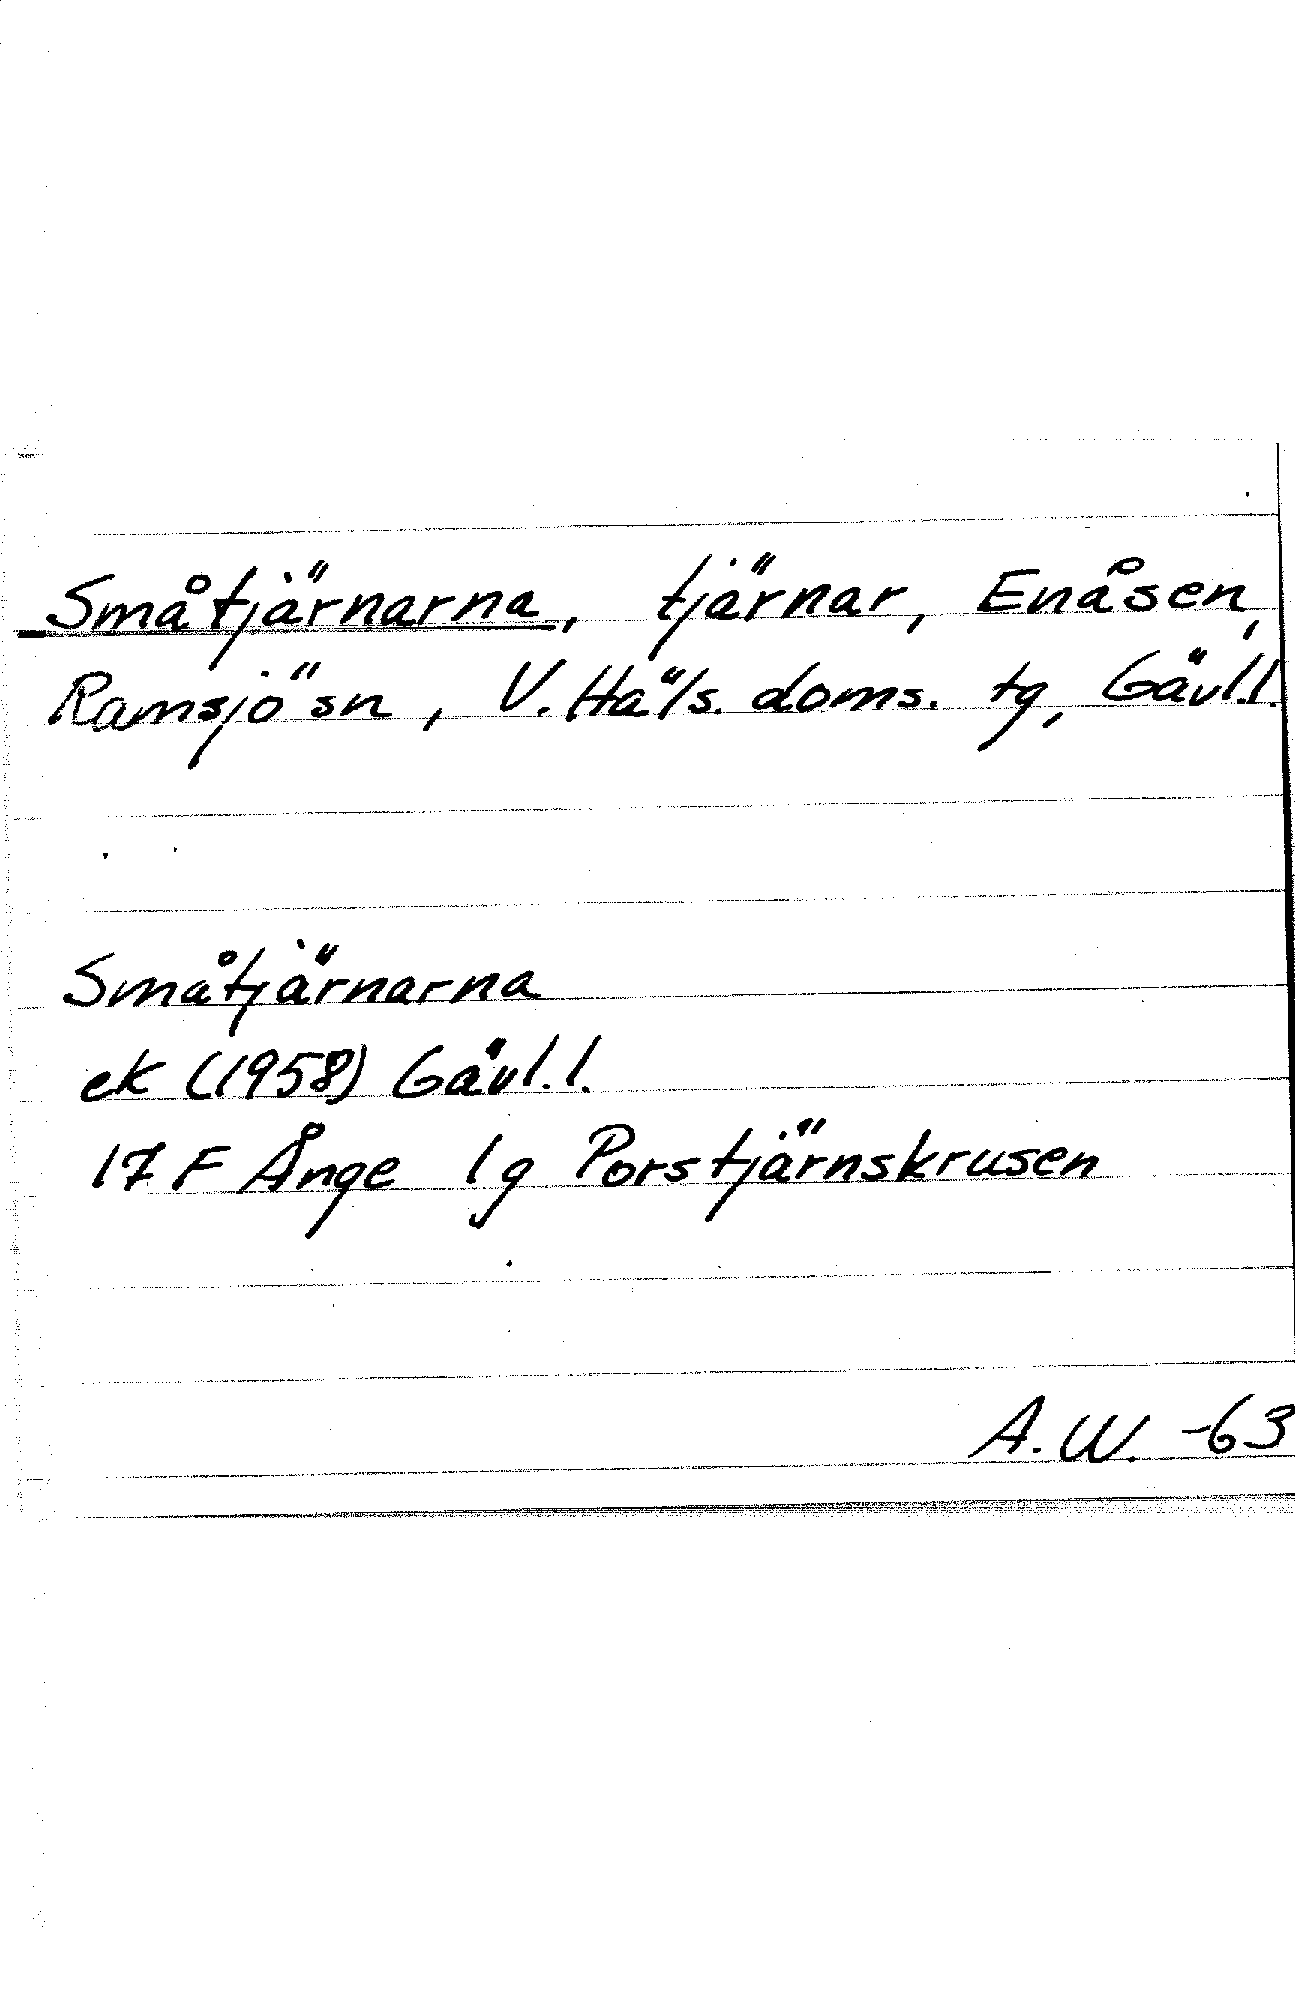 Småtjärnarna, tjärnar, Enåsen,
Ramsjö sn, V. Häls. doms. tg, Gävl.l.
Småtjärnarna
ek (1958) Gävl.l.
17 F Ånge 1g Porstjärnskrusen
A.W. -63